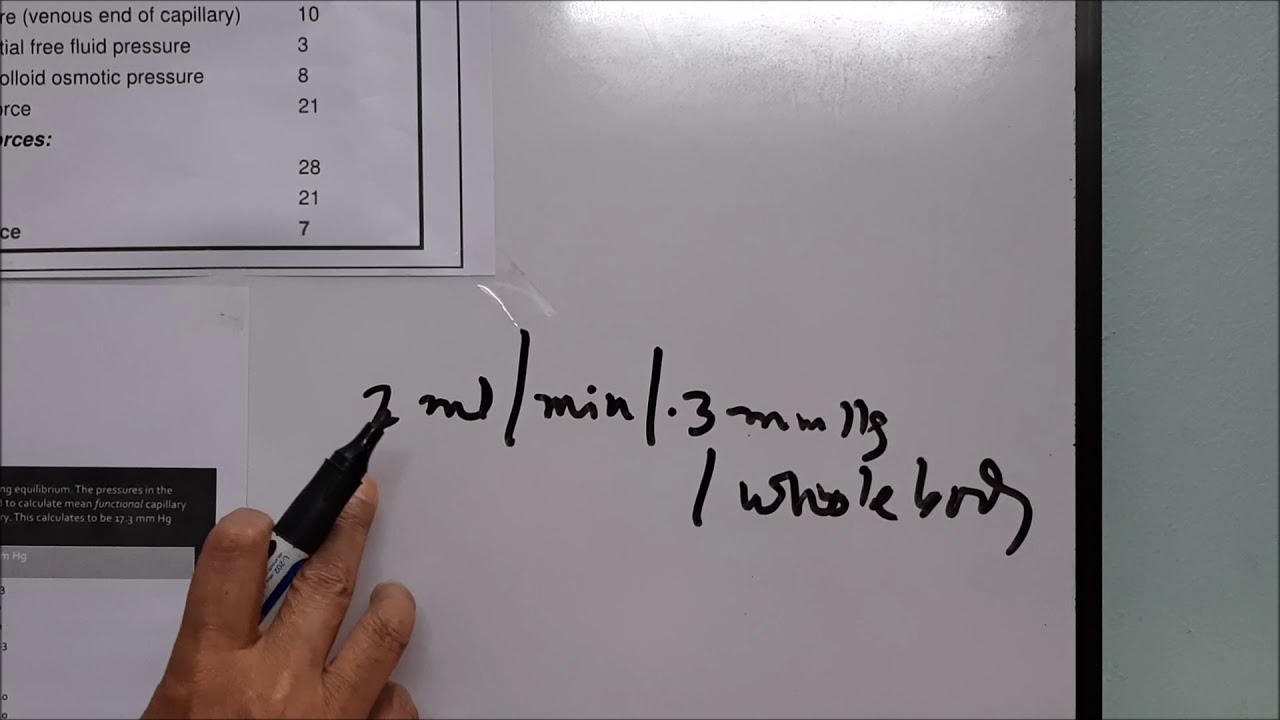 re (venous end of capillary) 10
tial free fluid pressure 3
olloid osmotic pressure 8
orce 21
orces:
28
21
ce 7
2 ml/min/.3 mm Hg
/ whole body
ng equilibrium. The pressures in the
l to calculate mean functional capillary
ry. This calculates to be 17.3 mm Hg
m Hg
3
3
0
0